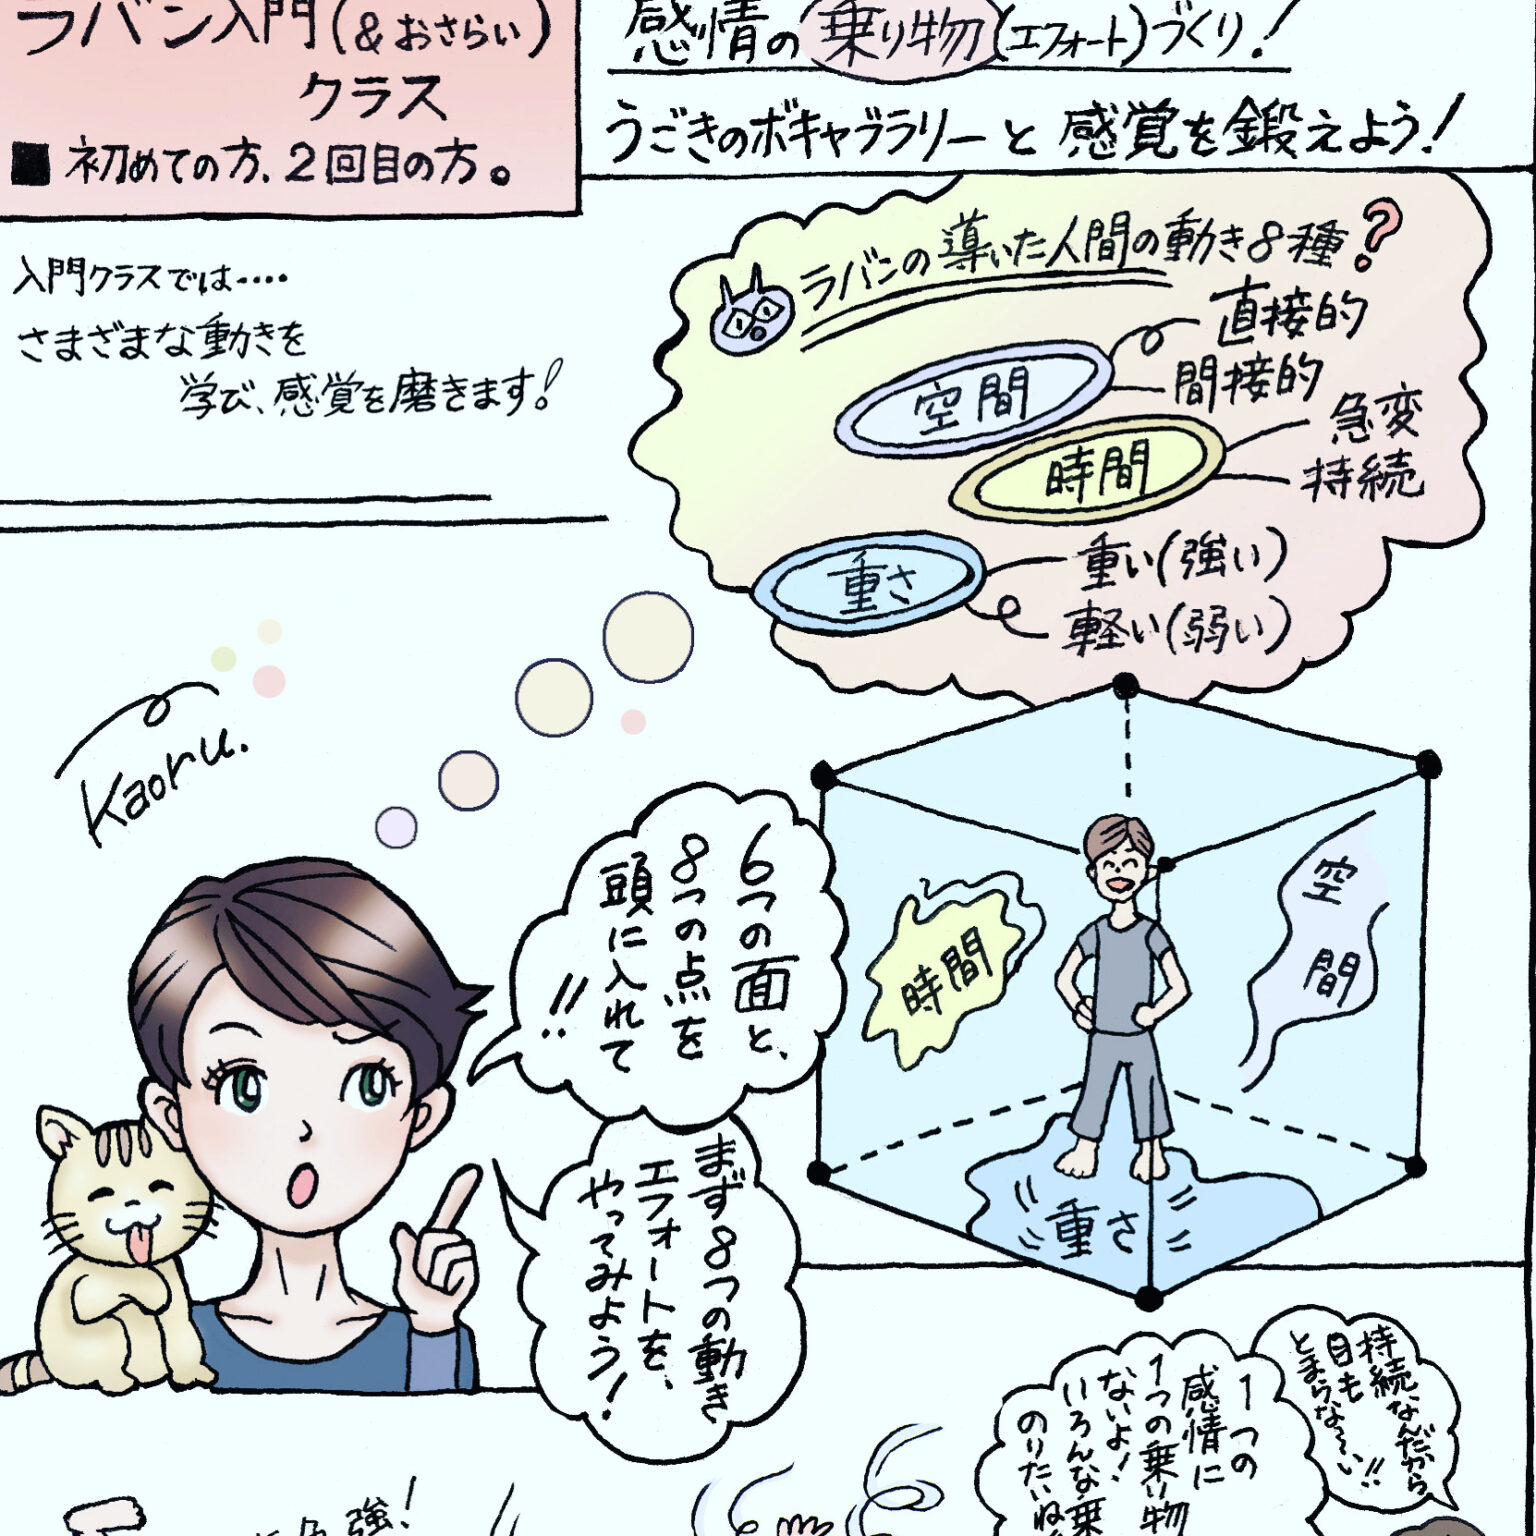 ラバン入門(&おさらい)
クラス
■ 初めての方、2回目の方。
感情の乗り物(エフォート)づくり!
うごきのボキャブラリーと感覚を鍛えよう!
入門クラスでは‥‥
さまざまな動きを
学び、感覚を磨きます!
ラバンの導いた人間の動き8種?
空間
直接的
間接的
時間
急変
持続
重さ
重い(強い)
軽い(弱い)
Kaoru.
6つの面と、
8つの点を
頭に入れて
!!
まず8つの動き
エフォートを、
やってみよう!
時間
空間
重さ
持続、なんだから
目も
とまらな〜い!!
1つの
感情に
1つの乗り物
ないよ!
いろんな乗
のりたいね
強!